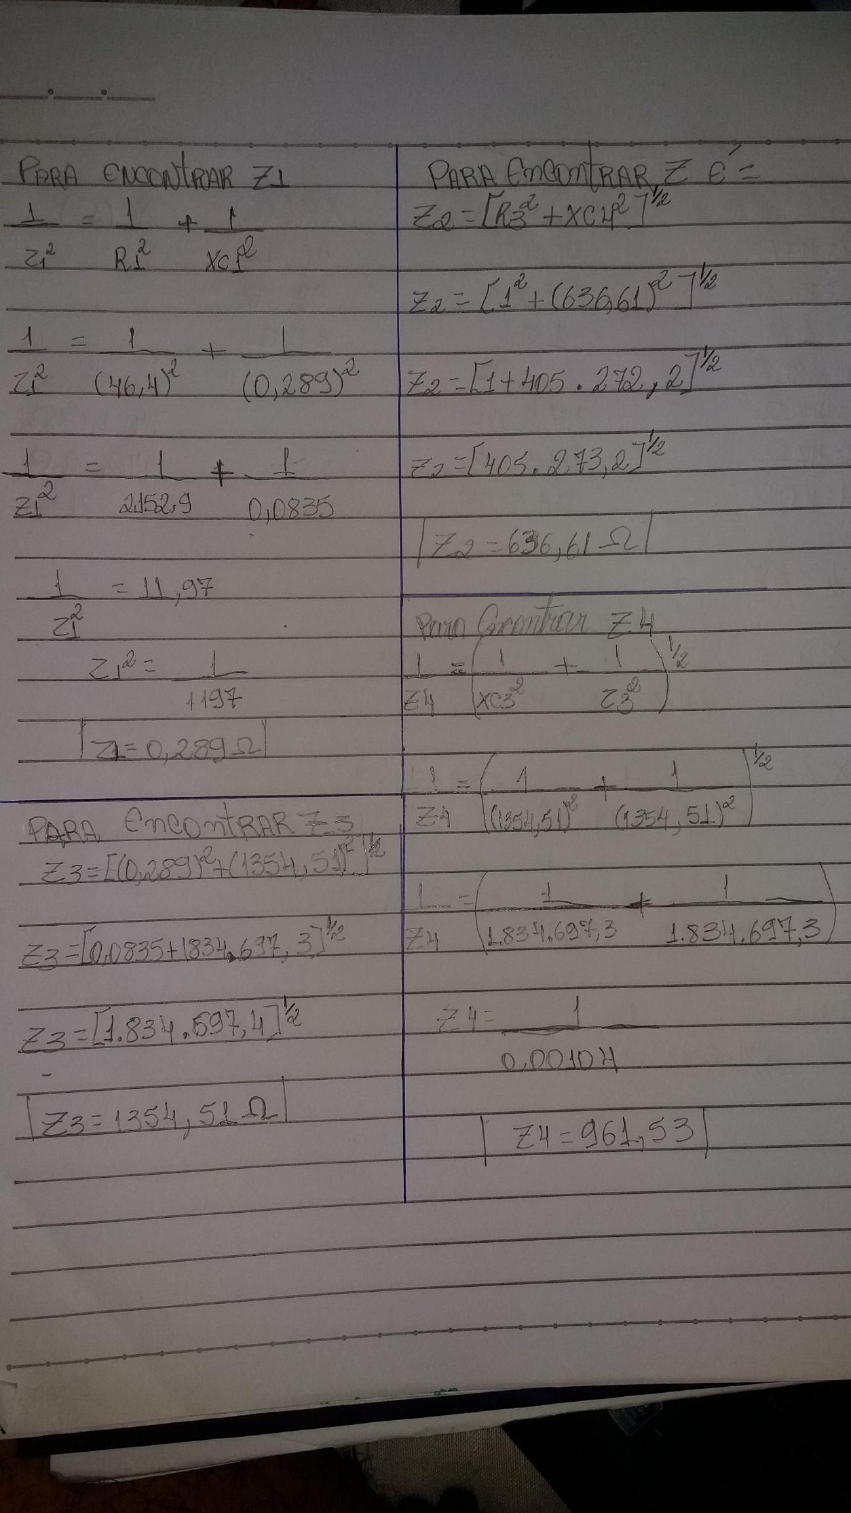 PARA ENCONTRAR Z1
1/Z1² = 1/R1² + 1/XC1²
1/Z1² = 1/(46,4)² + 1/(0,289)²
1/Z1² = 1/2152,9 + 1/0,0835
1/Z1² = 11,97
Z1² = 1/1197
Z1 = 0,289 Ω
PARA ENCONTRAR Z3
Z3 = [(0,289)² + (1354,51)²]^½
Z3 = [0,0835 + 1834.697,3]^½
Z3 = [1.834.597,4]^½
Z3 = 1354,51 Ω
PARA EnContRAR Z É =
Z2 = [R3² + XC4²]^½
Z2 = [1² + (636,61)²]^½
Z2 = [1 + 405.272,2]^½
Z2 = [405.273,2]^½
Z2 = 636,61 Ω
Para Encontrar Z4
1/Z4 = (1/XC3² + 1/Z3²)^½
1/Z4 = (1/(1354,51)² + 1/(1354,51)²)^½
1/Z4 = (1/1.834.697,3 + 1/1.834.697,3)
Z4 = 1/0,00104
Z4 = 961,53